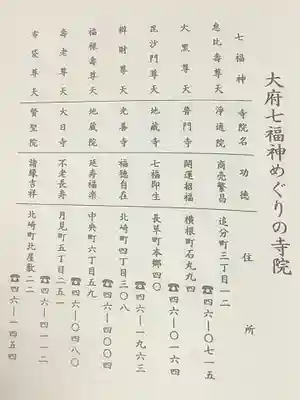 大府七福神めぐりの寺院
七福神 寺院名 功徳 住所
恵比寿尊天 浄通院 商売繁昌 追分町三丁目一二 ☎四六―〇七一五
大黒尊天 普門寺 開運招福 横根町石丸九四 ☎四六―〇一六四
毘沙門尊天 地蔵寺 七福即生 長草町本郷四〇 ☎四六―一九六三
辨財尊天 光善寺 福徳自在 北崎町四丁目三〇八 ☎四六―四〇〇四
福禄寿尊天 地蔵院 延寿福楽 中央町六丁目五九 ☎四六―〇四八〇
寿老尊天 大日寺 不老長寿 月見町五丁目二五一 ☎四六―四一一二
布袋尊天 賢聖院 諸縁吉祥 北崎町北屋敷二二 ☎四六―一四五四